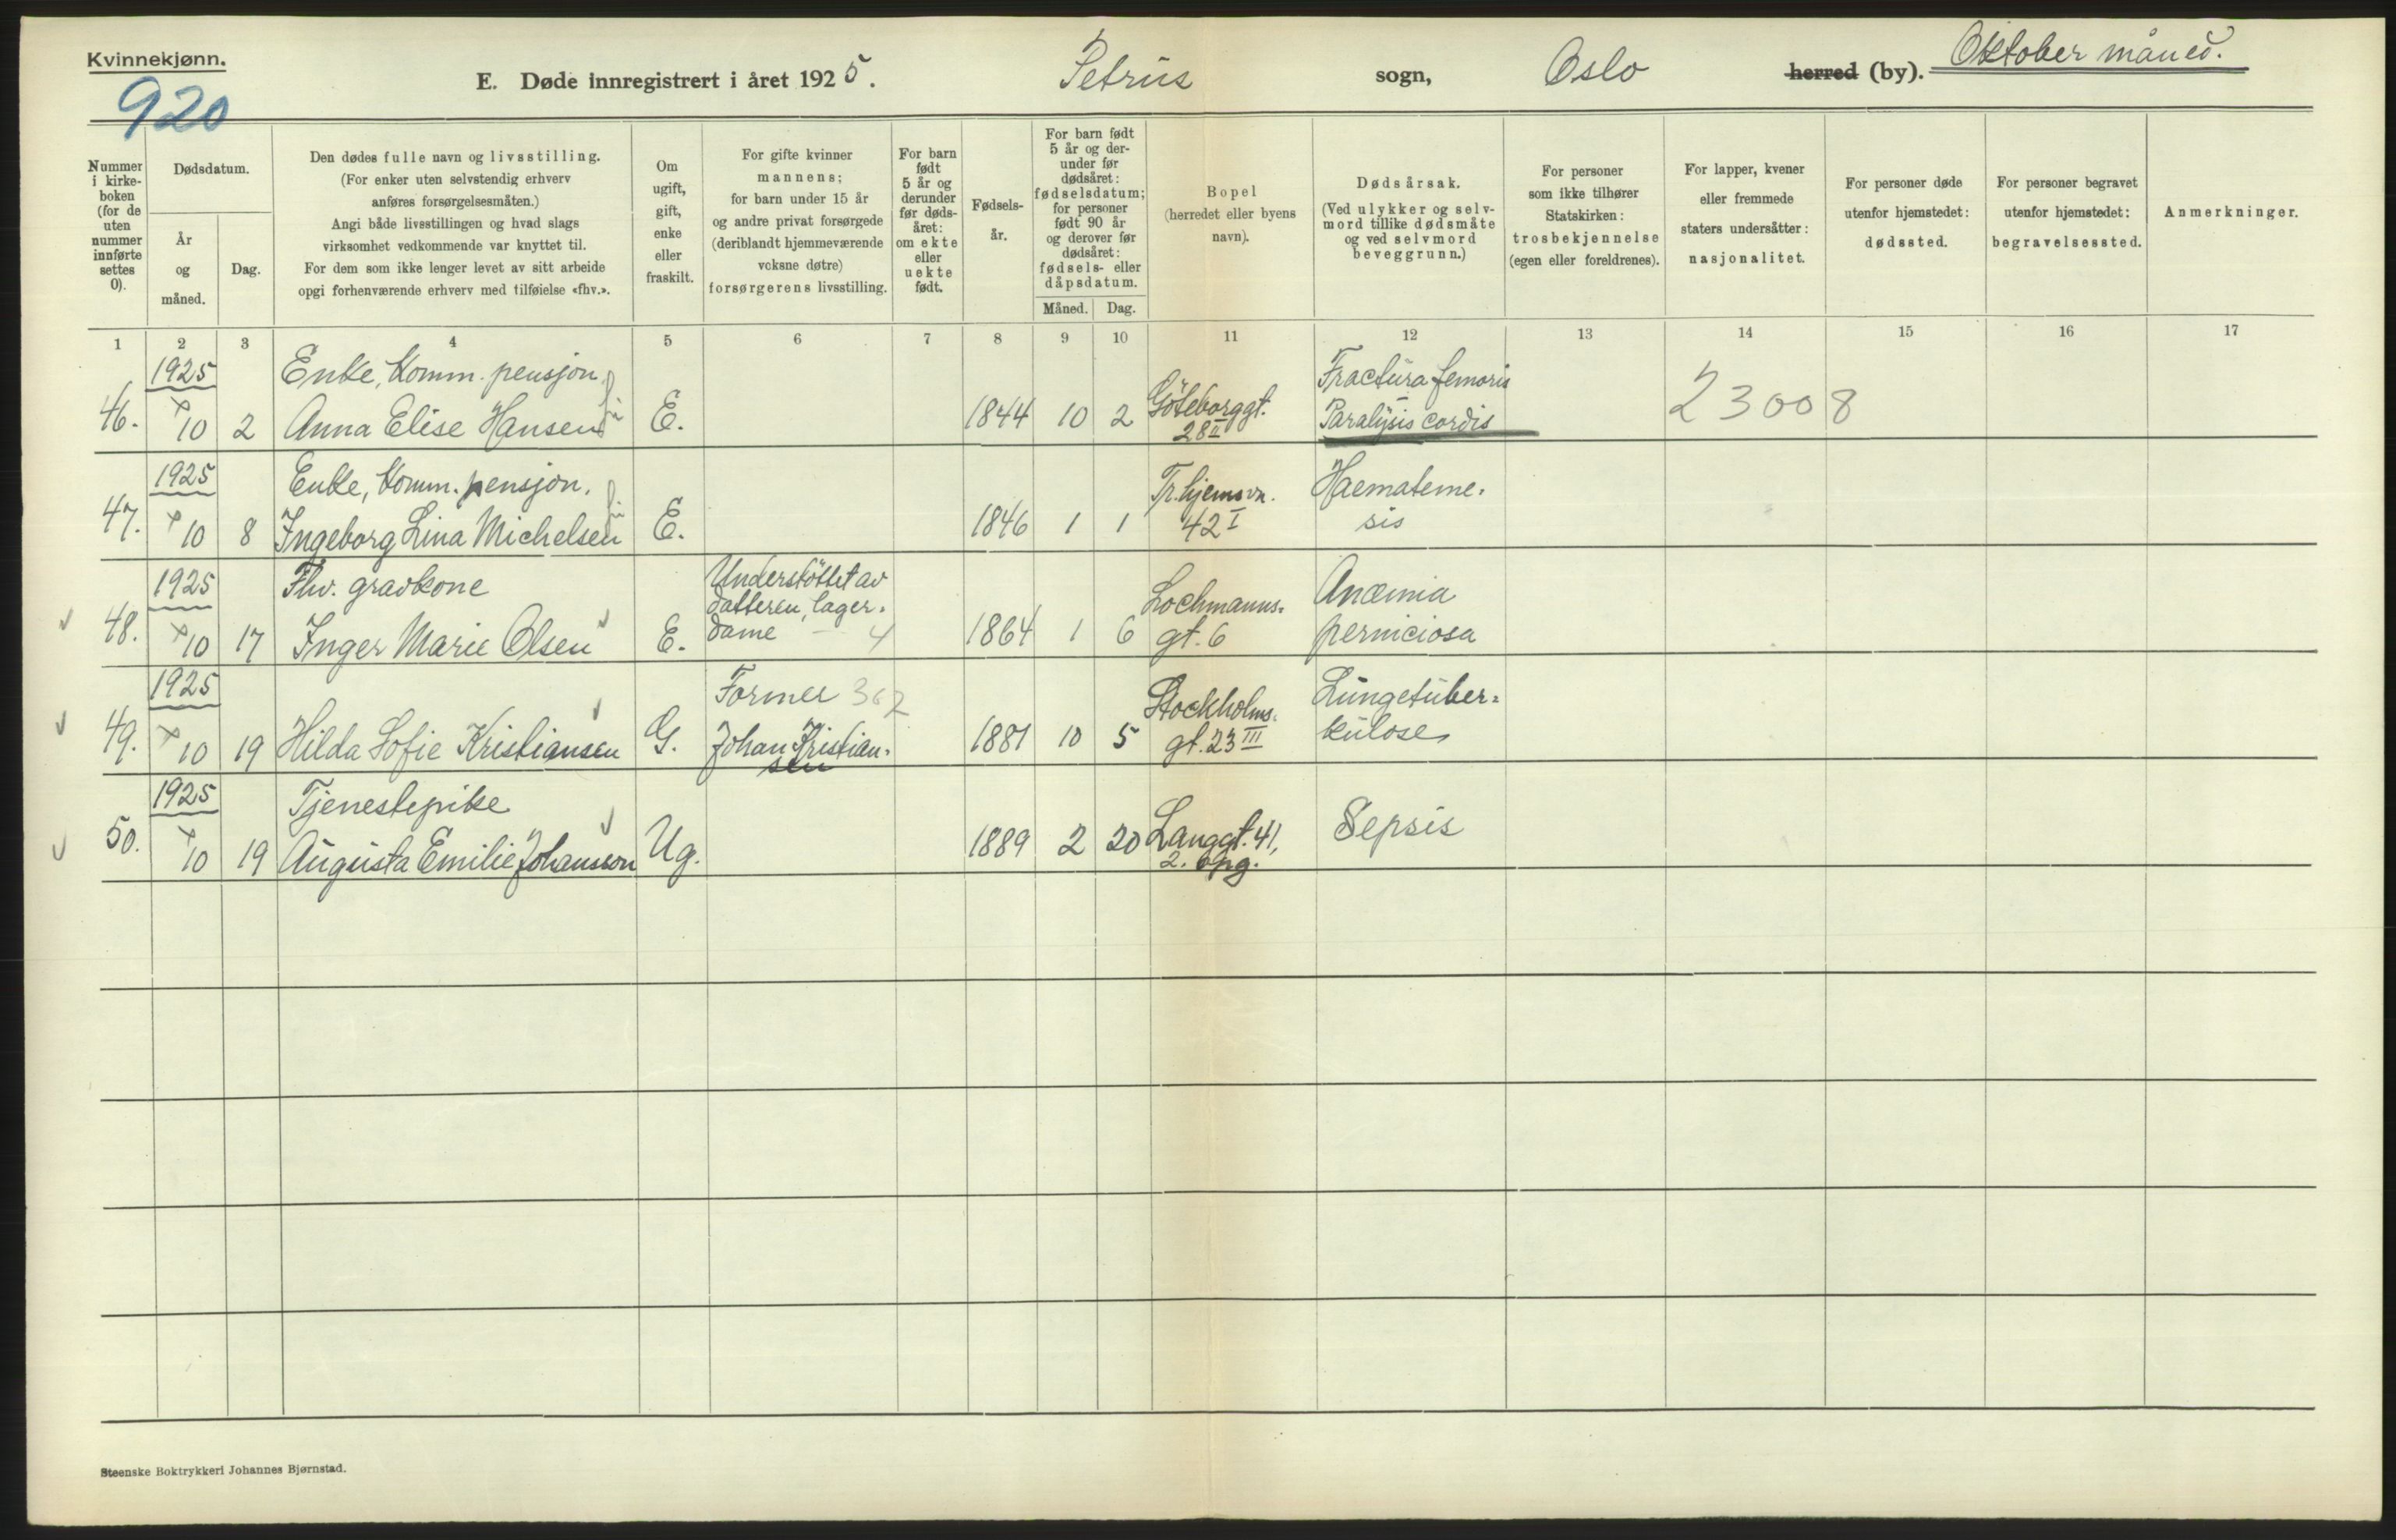 Kvinnekjønn.
920
E. Døde innregistrert i året 1925.
Petrus sogn, Oslo herred (by). Oktober måned.
Nummer i kirke-boken (for de uten nummer innførte settes 0).
Dødsdatum.
År og måned.
Dag.
Den dødes fulle navn og livsstilling.
(For enker uten selvstendig erhverv
anføres forsørgelsesmåten.)
Angi både livsstillingen og hvad slags
virksomhet vedkommende var knyttet til.
For dem som ikke lenger levet av sitt arbeide
opgi forhenværende erhverv med tilføielse «fhv.».
Om ugift, gift, enke eller fraskilt.
For gifte kvinner
mannens;
for barn under 15 år
og andre privat forsørgede
(deriblandt hjemmeværende
voksne døtre)
forsørgerens livsstilling.
For barn født 5 år og derunder før døds-året: om ekte eller uekte født.
Fødsels-år.
For barn født 5 år og der-under før dødsåret: fødselsdatum; for personer født 90 år og derover før dødsåret: fødsels- eller dåpsdatum.
Måned. Dag.
Bopel
(herredet eller byens
navn).
Dødsårsak.
(Ved ulykker og selv-
mord tillike dødsmåte
og ved selvmord
beveggrunn.)
For personer
som ikke tilhører
Statskirken:
trosbekjennelse
(egen eller foreldrenes).
For lapper, kvener
eller fremmede
staters undersåtter:
nasjonalitet.
For personer døde
utenfor hjemstedet:
dødssted.
For personer begravet
utenfor hjemstedet:
begravelsessted.
Anmerkninger.
1 2 3 4 5 6 7 8 9 10 11 12 13 14 15 16 17
1925 Enke, komm. pensjon. Fractura femoris
46. 10 2 Anna Elise Hansen E. 1844 10 2 Göteborggt. 28 II Paralysis cordis 23008
1925 Enke, komm. pensjon. Tr.hjemsvn. Haemateme-
47. 10 8 Ingeborg Lina Michelsen E. 1846 1 1 42 I sis
1925 Fhv. gravkone Understöttet av datteren, lager- Lochmanns- Anæmia
48. 10 17 Inger Marie Olsen E. dame 4 1864 1 6 gt. 6 perniciosa
1925 Former 362 Stockholms- Lungetuber-
49. 10 19 Hilda Sofie Kristiansen G. Johan Kristian-sen 1881 10 5 gt. 23 III kulose
1925 Tjenestepike
50. 10 19 Augusta Emilie Johansson Ug. 1889 2 20 Langgt. 41, 2. opg. Sepsis
Steenske Boktrykkeri Johannes Bjørnstad.